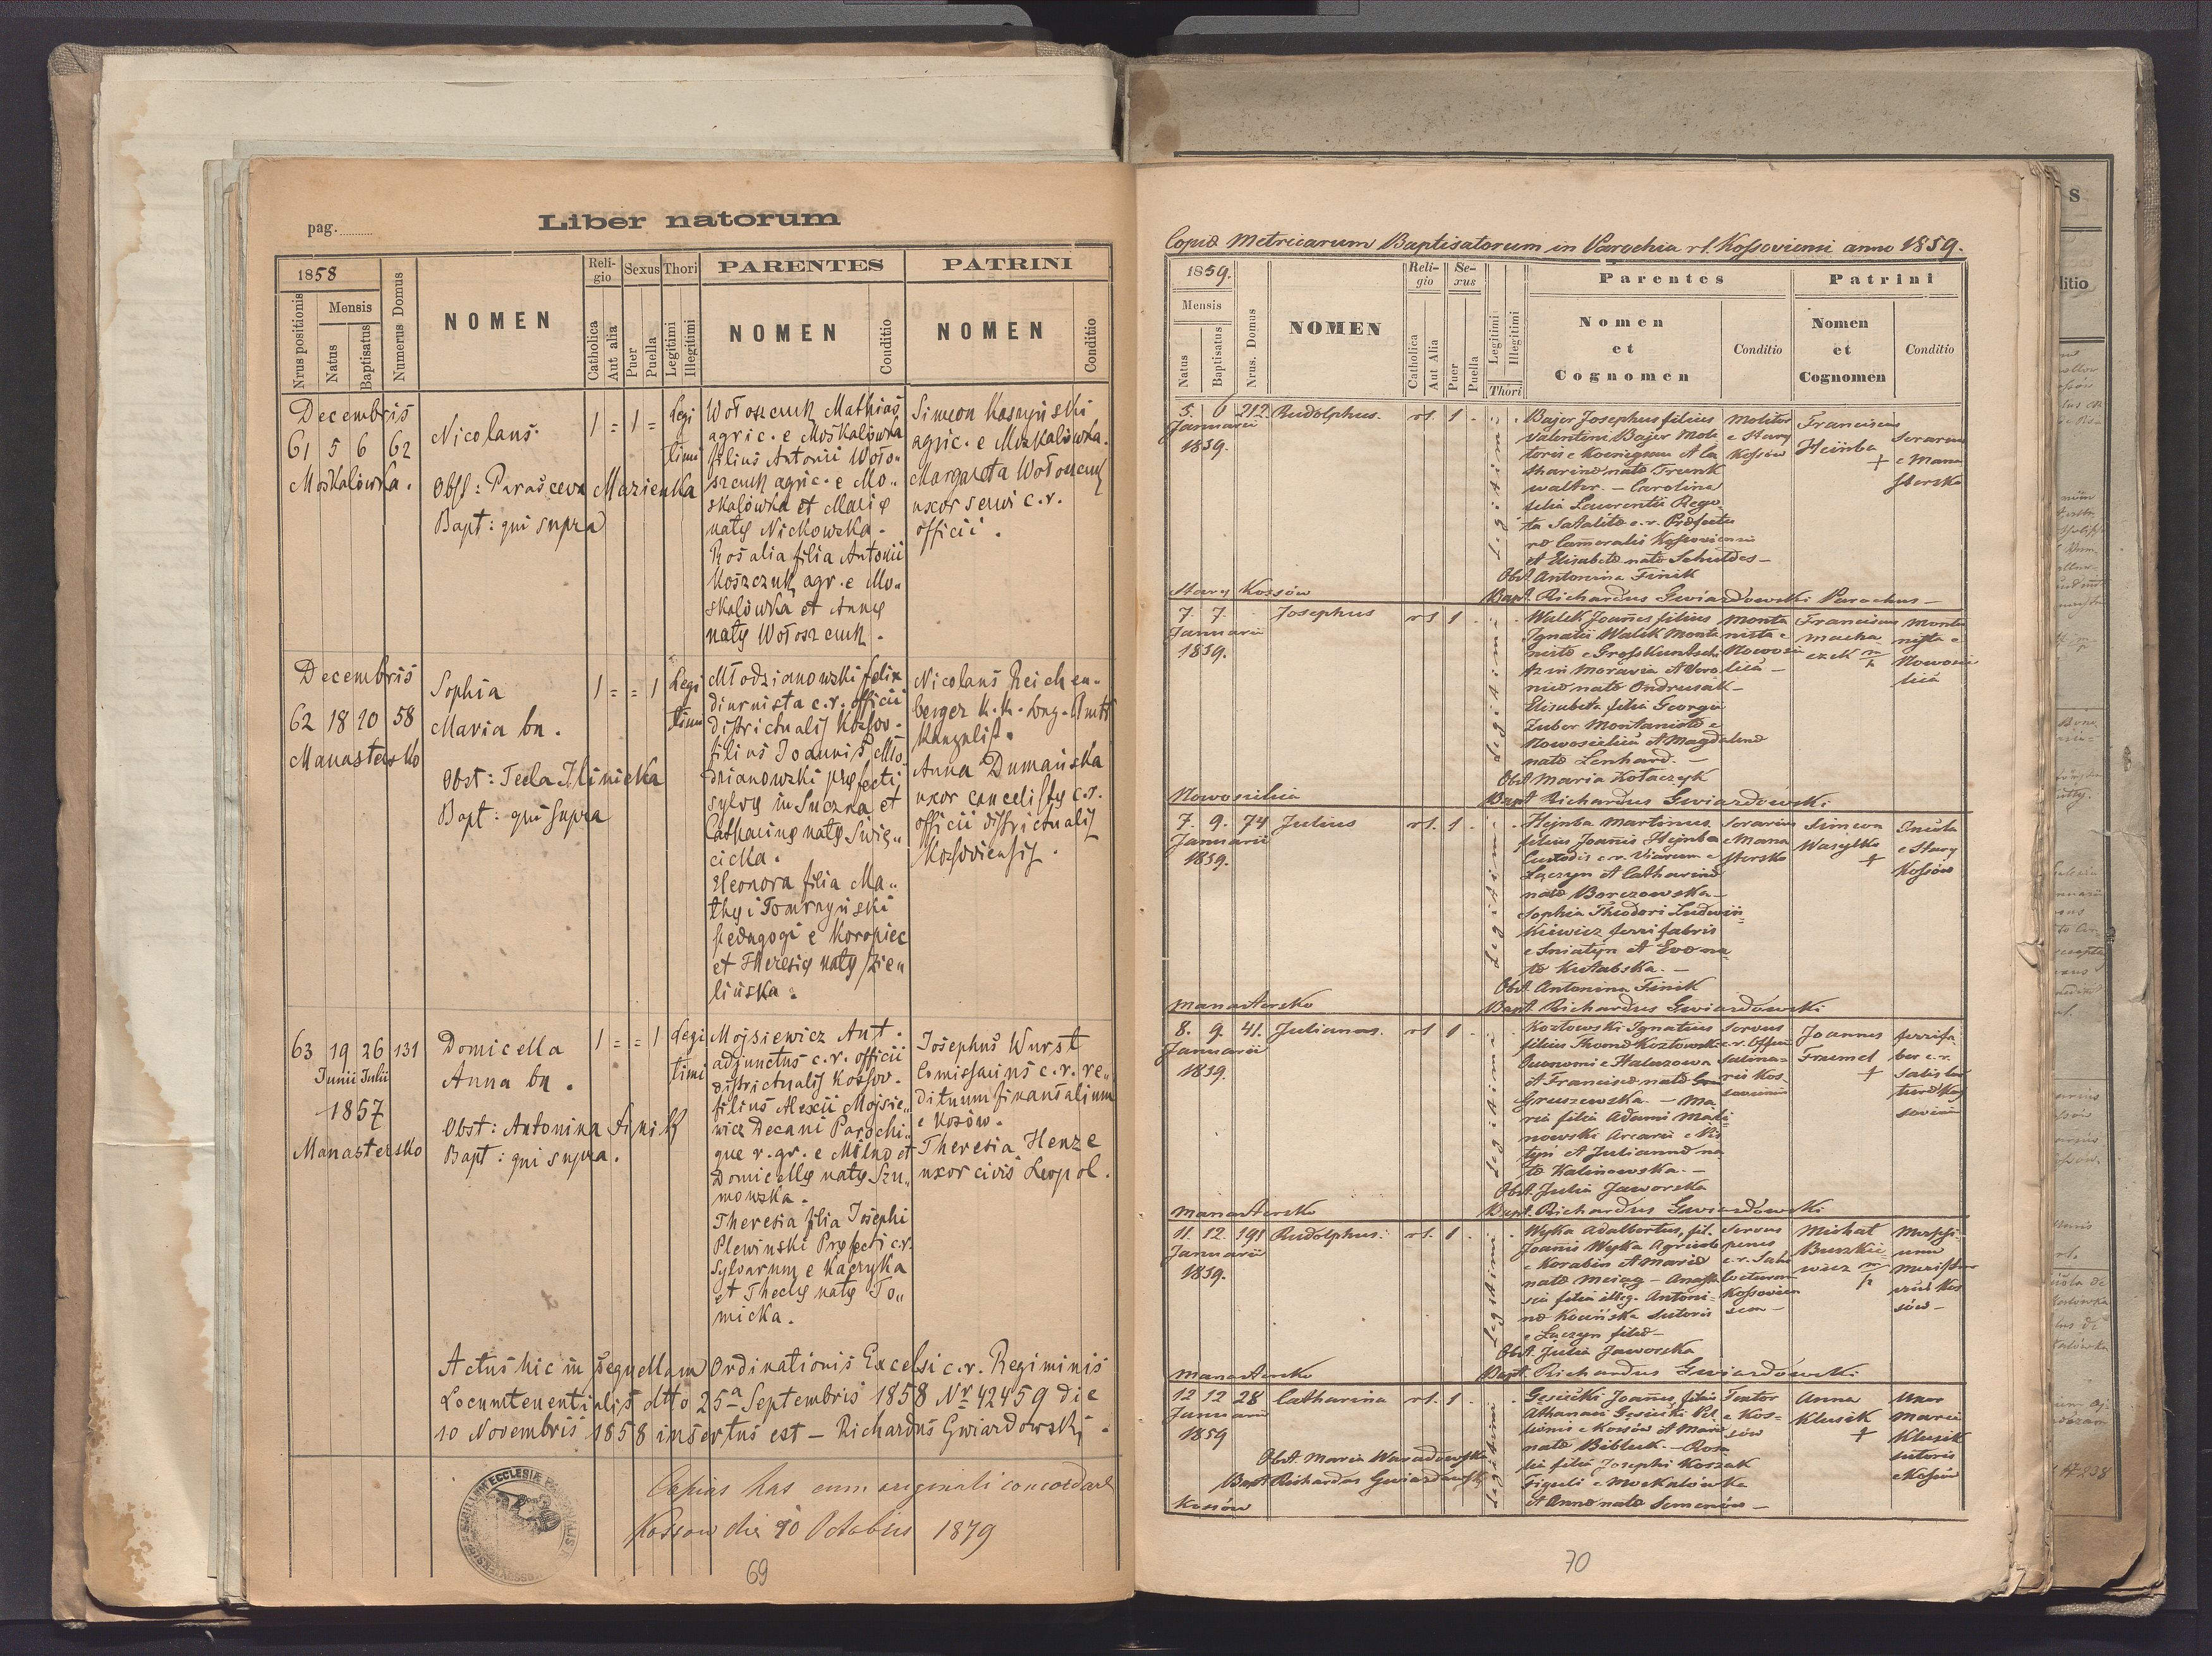 pag.
Liber natorum
1858
Nrus positionis
Mensis
Natus
Baptisatus
Numerus Domus
NOMEN
Religio
Catholica
Aut alia
Sexus
Puer
Puella
Thori
Legitimi
Illegitimi
PARENTES
NOMEN
Conditio
PATRINI
NOMEN
Conditio
Decembris
61 5 6 62
Moskalówka.
Nicolaus.
Obst: Parasceva Mazienka
Bapt: qui supra
1 = 1 =
Legi
timi
Wołoszczuk Mathias
agric. e Moskalówka
filius Antonii Woło„
szczuk agric. e Mo„
skalówka et Marię
natę Nickowska.
Rosalia filia Antonii
Koszczuk agr. e Mo„
skalówka et Annę
natę Wołoszczuk.
Simeon
agric. e Moskalówka.
Margareta Wołoszczuk
uxor servi c.r.
officii.
Decembris
62 18 20 58
Manastersko
Sophia
Maria bn.
Obst: Tecla Ilinicka
Bapt: qui supra
1 = = 1
Legi
timi
Młodzianowski Felix
diurnista c.r. officii
districtualis Kossov.
filius Joannis Mło
dzianowski pręfecti
sylvę in Suczna et
Catharinę natę Swię„
cicka.
Eleonora filia Ma„
thęi
pedagogi e Koropiec
et Theresię natę Zie„
lińska.
Nicolaus Reichen„
berger k.k. Bez. Amts
Kanzelist.
Anna Dumańska
uxor cancelistę c.r.
officii districtualis
Kossoviensis.
63 19 26 131
Junii Julii
1857
Manastersko
Domicella
Anna bn.
Obst: Antonina Finik
Bapt: qui supra.
1 = = 1
Legi
timi
Mojsiewicz Ant.
adjunctus c.r. officii
districtualis Kossov.
filius Alexii Mojsie„
wicz Decani Parochi„
que r.gr. e Milno et
Domicellę natę Szu„
mowska.
Theresia filia Josephi
Plewinski Pręfecti c.r.
Sylvarum e Kaczyka
et Theclę natę To„
micka.
Josephus Wurst
Comissarius c.r. re„
dituum finansalium
e Kosów.
Theresia Henze
uxor civis Leopol.
Actus hic in sequellam Ordinationis Excelsi c.r. Regiminis
Locumtenentialis dtto 25a Septembris 1858 Nr 42459 die
10 Novembris 1858 insertus est – Richardus Gwiazdowski.
Copias has cum originali concordare
Kossow die 20 Octobris 1879
69
Copia Metricarum Baptisatorum in Parochia r.l. Kossoviensi anno 1859.
1859.
Mensis
Natus
Baptisatus
Nrus. Domus
NOMEN
Religio
Catholica
Aut Alia
Sexus
Puer
Puella
Legitimi
Illegitimi
Thori
Parentes
Nomen
et
Cognomen
Conditio
Patrini
Nomen
et
Cognomen
Conditio
5. 6 212 Rudolphus. r.l. 1 .
Januarii
1859.
Legitimi
Bajer Josephus filius
Valentini Bajer Moli
toris e Koenigsau et Ca
tharina nata Trunk
walter. – Carolina
filia Laurentii Rogo
ta Satalite c.r. Prefectu
re Cameralis Kossoviensis
et Elisabeta nata Schuldes –
Obst. Antonina Finik
Bapt. Richardus Gwiazdowski Parochus –
Molitor
e Stary
Kossów
Franciscus
Hejnba
+
Serarius
e Mana
stersko
Stary Kossów
7. 7. Josephus r.l. 1 .
Januarii
1859.
Legitimi
Walek Joannes filius
Ignatii Walek Monta
niste e Grosskuntschi
tz in Moravia et Vero
nica nata Ondrusak –
Elisabeta filia Georgii
Zuber Montaniste e
Nowosielica et Magdalena
nata Lenhard. –
Obst. Maria Kołaczyk
Bapt. Richardus Gwiazdowski
Monta
nista e
Nowosie
lica –
Franciscus
Macha
czek
Monta
nista e
Nowosie
lica
Nowosielica
7. 9. 74 Julius r.l. 1 .
Januarii
1859.
Legitimi
Hejnba Martinus
filius Joannis Hejnba
Custodis c.r. Viarum e
Łęczyn et Catharina
nata Borczowska –
Sophia Theodori Ludwin
kiewicz ferri fabris
e Sniatyn et Eva na
ta Kutabska. –
Obst. Antonina Finik
Bapt. Richardus Gwiazdowski
Serarius
e Mana
stersko
Simeon
Wasylko
+
Incola
e Stary
Kossów
Manastersko
8. 9. 41. Julianus. r.l. 1 .
Januarii
1859.
Legitimi
Kozłowski Ignatius
filius Thoma Kozłowski
Oeconomi e Haluszowa
et Francisca nata
Gruszewska. – Ma
ria filia Adami Mali
nowski Arcarii e Pis
tyn et Julianna na
ta Kalinowska. –
Obst. Julia Jaworska
Bapt. Richardus Gwiazdowski
Servus
c.r. Officii
Salina
ris Kos
soviensis
Joannes
Fraemel
+
ferrifa
ber c.r.
Manastersko
11. 12. 191 Rudolphus. r.l. 1 .
Januarii
1859.
Legitimi
Wyka Adalbertus, fil.
Joannis Wyka Agricole
e Korabin et Maria
nata Meiag – Anasta
sia filia illeg. Antoni
na Kocińska Sutoris
e Łuczyn filia –
Obst. Julia Jaworska
Bapt. Richardus Gwiazdowski
Servus
penes
c.r. Sali
Kossovien
sem –
Michał
Buszkie
wicz
sów –
Manastersko
12 12 28 Catharina r.l. 1 .
Januarii
1859
Obst. Maria Wasadowska
Bapt Richardus Gwiazdowski
Legitimi
Gesicki Joannes, filius
Athanasii Gesicki Pel
lionis e Kossów et Maria
nata Bibluk. – Rosa
lia filia Josephi Koszak
Figuli e Moskalówka
et Anna nata Semenów –
Textor
e Kos-
sów
Anna
Klusik
+
Uxor
Marci
Klusik
sutoris
e Kossów
Kossów
70